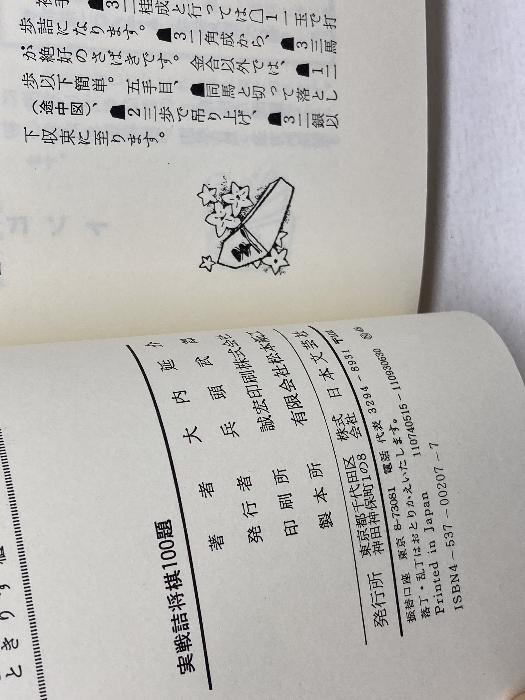 3二桂成と行っては☖1一玉で打
歩詰になります。☗3二角成から、☗3三馬
が絶好のさばきです。金合以外では、☗1二
歩以下簡単。五手目、☗同馬と切って落とし
(途中図)、☗2三歩で吊り上げ、☗3二銀以
下収束に至ります。
実戦詰将棋100題
著者 大内延介
発行者 兵頭武
印刷所 誠宏印刷株式会社
製本所 有限会社松本
発行所 東京都千代田区神田神保町1の8 株式会社 日本文芸社
振替口座 東京 8-73081 電話 代表 3294-8931
落丁・乱丁はおとりかえいたします。
110740515-110930630
Printed in Japan
ISBN4-537-00207-7